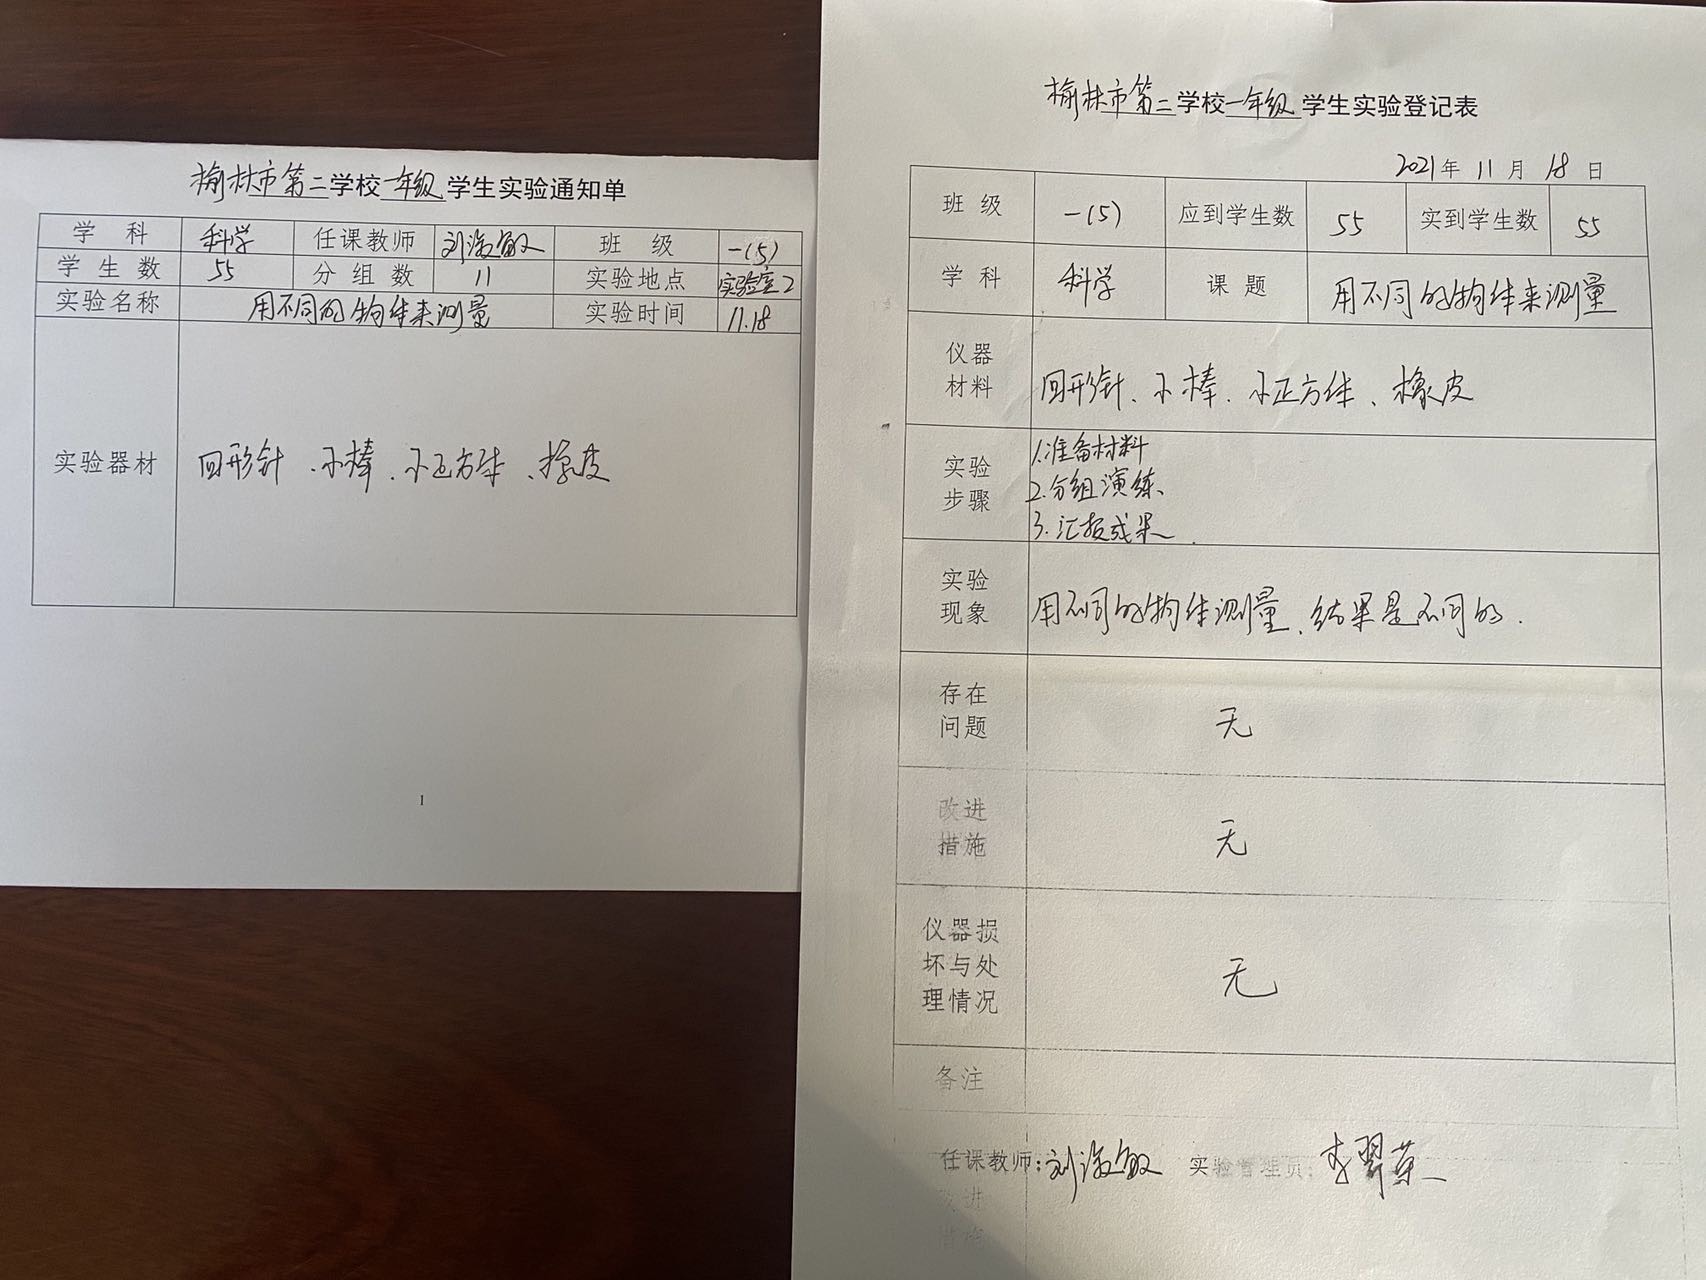 榆林市第二学校一年级学生实验通知单
学科 科学 任课教师 班级 一(5)
学生数 55 分组数 11 实验地点 实验室2
实验名称 用不同的物体来测量 实验时间 11.18
实验器材 回形针、小棒、小正方体、橡皮
1
榆林市第二学校一年级学生实验登记表
2021年11月18日
班级 一(5) 应到学生数 55 实到学生数 55
学科 科学 课题 用不同的物体来测量
仪器
材料 回形针、小棒、小正方体、橡皮
实验
步骤
1.准备材料
2.分组演练、
3.汇报成果.
实验
现象 用不同的物体测量、结果是不同的.
存在
问题 无
改进
措施 无
仪器损
坏与处
理情况
无
备注
任课教师: 实验管理员:
进